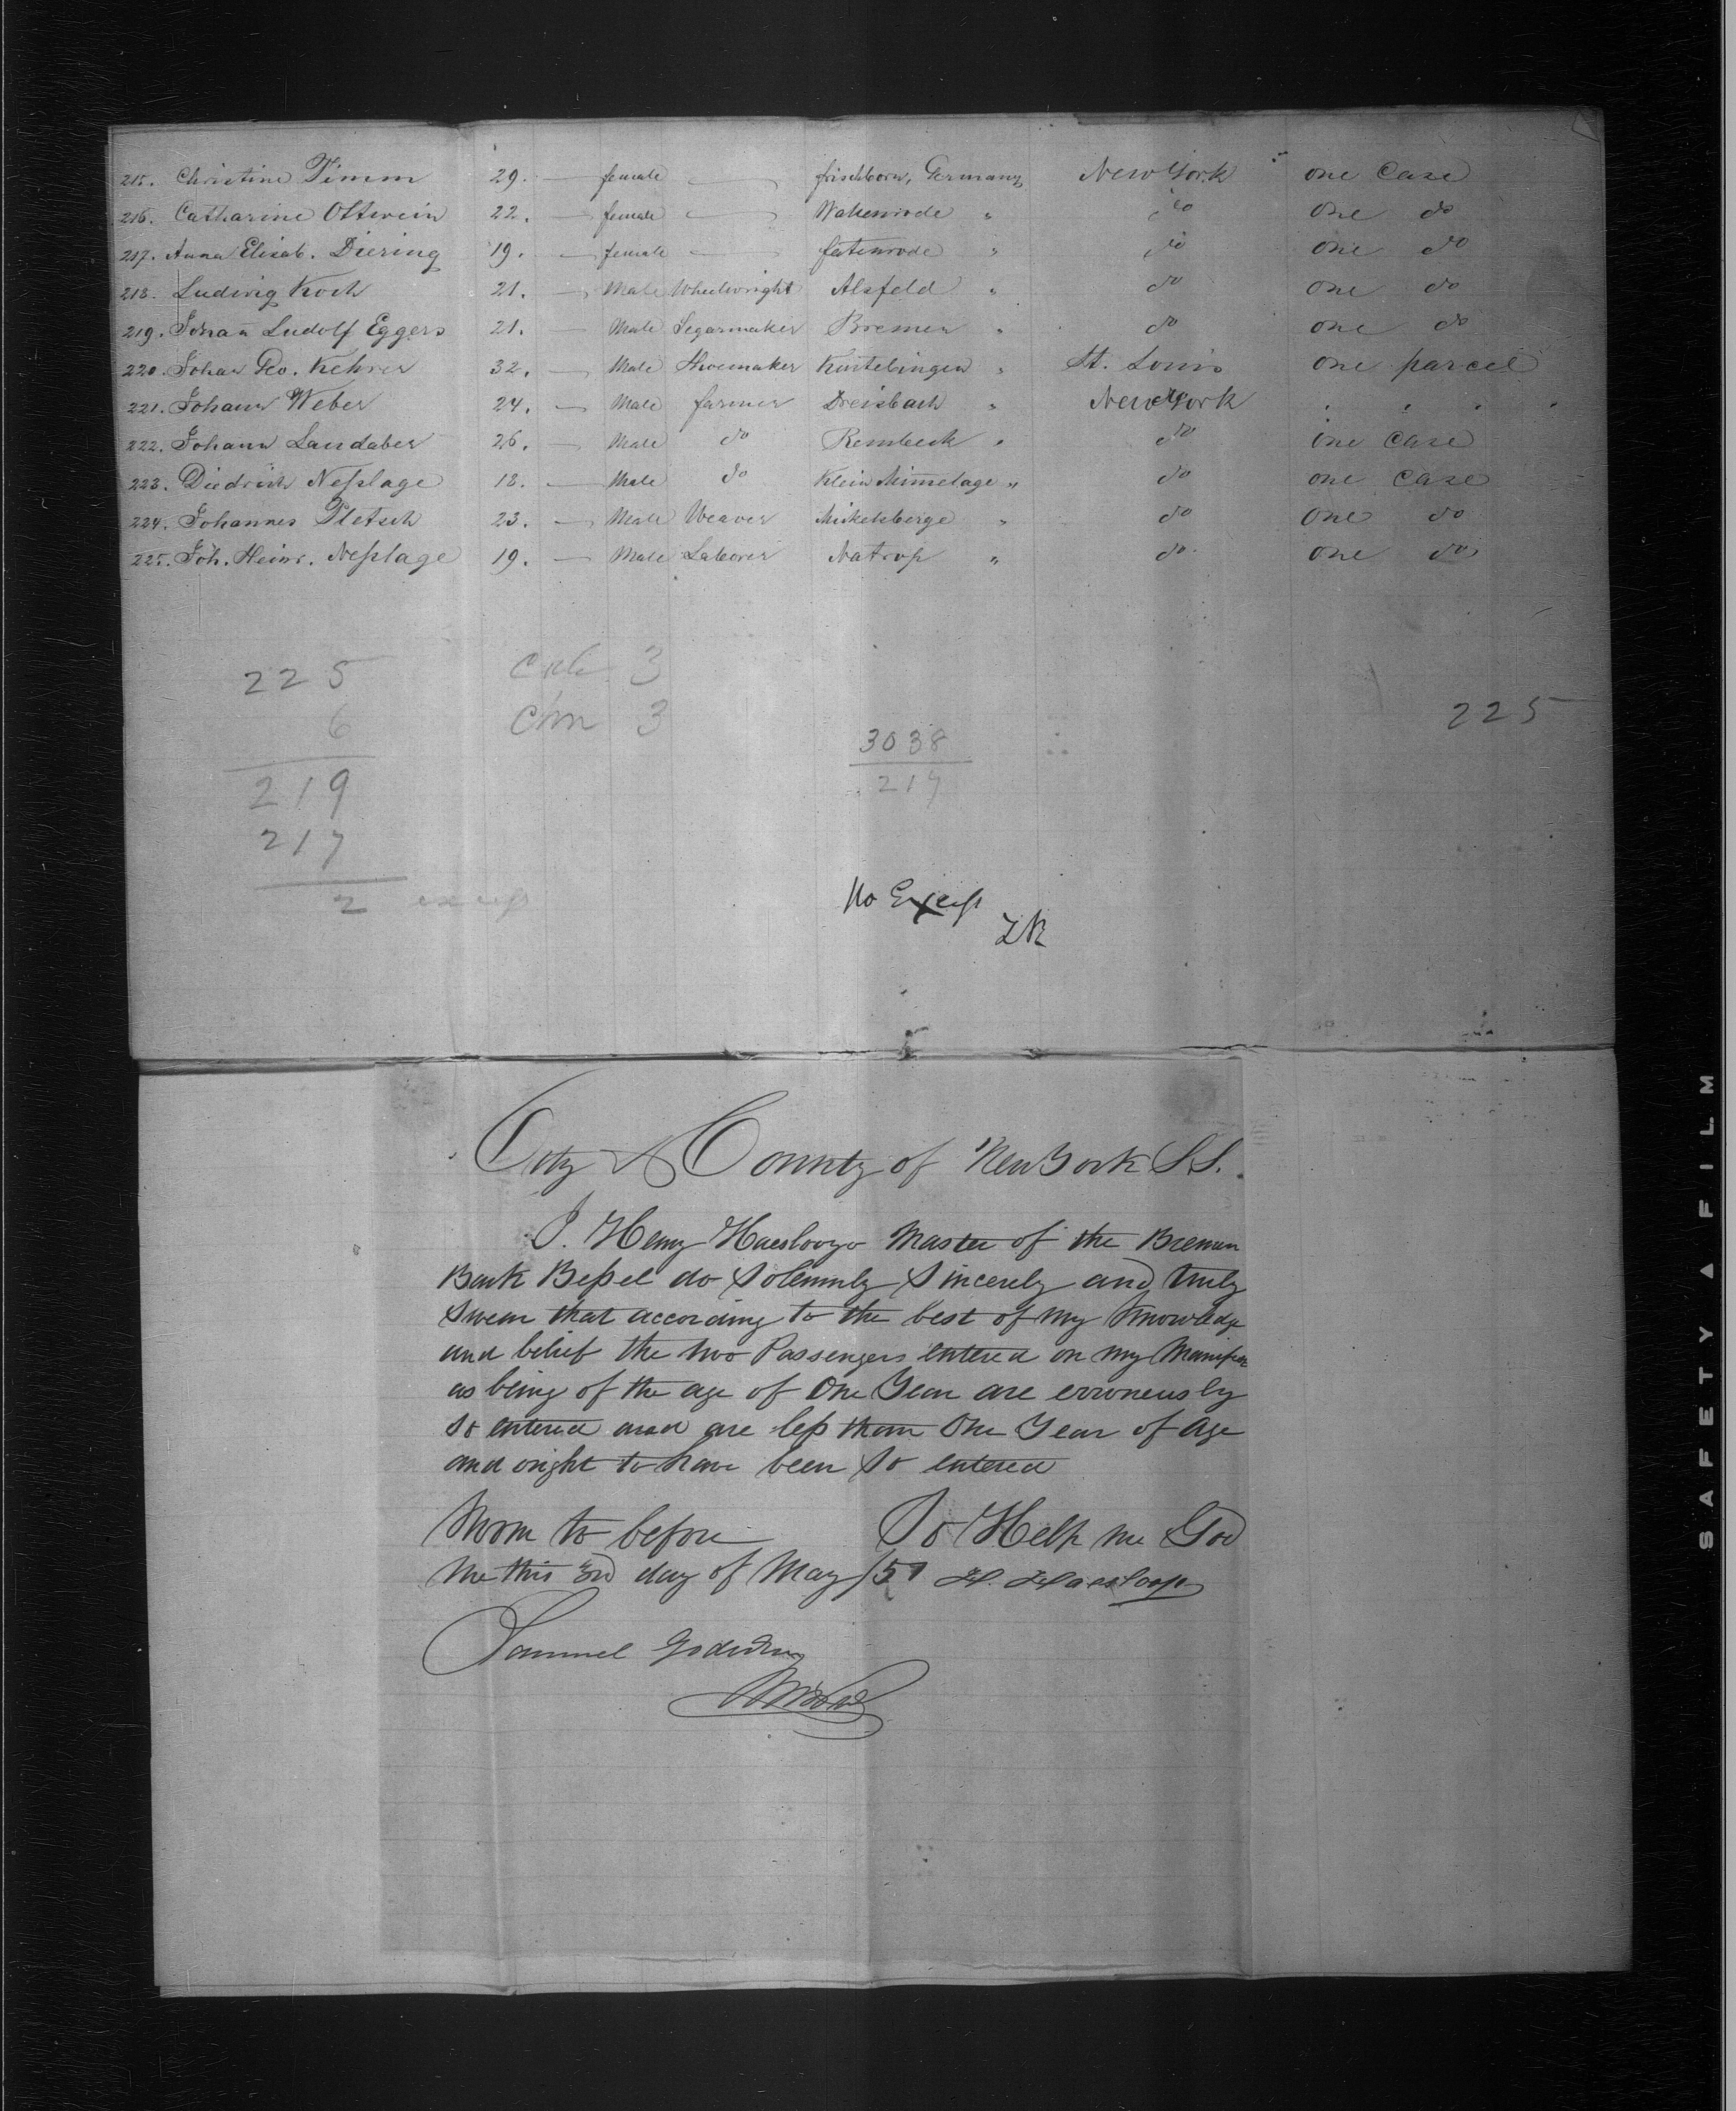 215. Christine Timm 29. — female — frischborn, Germany New York one Case
216. Catharine Ottwein 22. — female — Wakenrode " do One do
217. Anna Elisab. Diering 19. — female — " do one do
218. Ludwig Koch 21. — Male Wheelwright Alsfeld " do one do
219. Johan̄ Ludolf Eggers 21. — Male Segarmaker Bremen " do one do
220. Johan Geo. Kehrer 32. — Male Shoemaker " St. Louis one parcel
221. Johann Weber 24. — Male farmer Dreisbach " New York
222. Johann Landaber 26. — Male do Rembeck " do one Case
223. Diedrich Neſslage 18. — Male do Klein Mimmelage " do one Case
224. Johannes Pletsch 23. — Male Weaver " do one do
225. Joh. Heinr. Neſslage 19. — Male Laborer Natrop " do. one do
225 3
6 Chn 3
225
219 3038
217 217
2 excess
No Excess
City & County of New York S.S.
I. Henry Master of the Bremen
Bark Beſsel do Solemnly Sincerely and truly
Swear that according to the best of my Knowledge
and belief the two Passengers entered on my Manifest
as being of the age of One Year are erroneously
so entered and are leſs than One Year of Age
and ought to have been so entered
Sworn to before So Help me God
me this 3rd day of May /51 H. Haesloop
Samuel